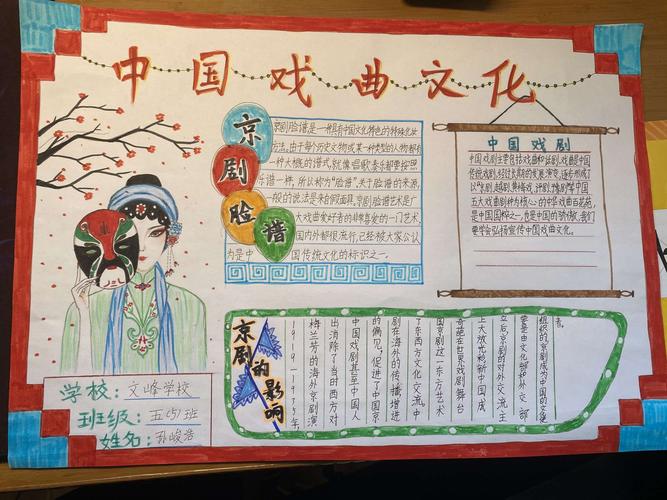 中国戏曲文化
京剧脸谱
京剧脸谱是一种具有中国文化特色的特殊化妆
方法。由于每个历史人物或某一种类型的人物都有
一种大概的谱式,就像唱歌、奏乐都要按照
乐谱一样,所以称为"脸谱"。关于脸谱的来源,
一般的说法是来自假面具。京剧脸谱艺术是广
大戏曲爱好者的非常喜爱的一门艺术
国内外都很流行,已经被大家公认
为是中国传统文化的标识之一。
中国戏剧
中国戏剧主要包括戏曲和话剧,戏曲是中国
传统戏剧,经过长期的发展演变,逐步形成了
以"京剧、越剧、黄梅戏、评剧、豫剧"中国
五大戏曲剧种为核心的中华戏曲百花苑,
是中国国粹之一,也是中国的骄傲,我们
要学会弘扬宣传中国戏曲文化。
京剧的影响
1919-1935年,
梅兰芳的海外京剧演
出消除了当时西方对
中国戏剧甚至中国人
的偏见,促进了中国京
剧在海外的传播,增进
了东西方文化交流。中
国京剧这一东方艺术
奇葩在世界戏剧舞台
上大放光彩。新中国成
立后,京剧的对外交流主
要是由文化部和外交部
组织的,京剧成为中国的文化使
者。
学校:文峰学校
班级:五(5)班
姓名:孙峻浩